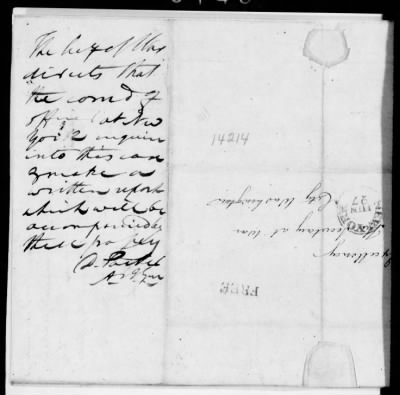 The Secy of War
directs that
the comd g
officer at New
York inquire
into this case
& make a
written report
which will be
accompanied by
these papers
D. Parker
14214
Secretary at War
City Washington
JUN
27
FREE